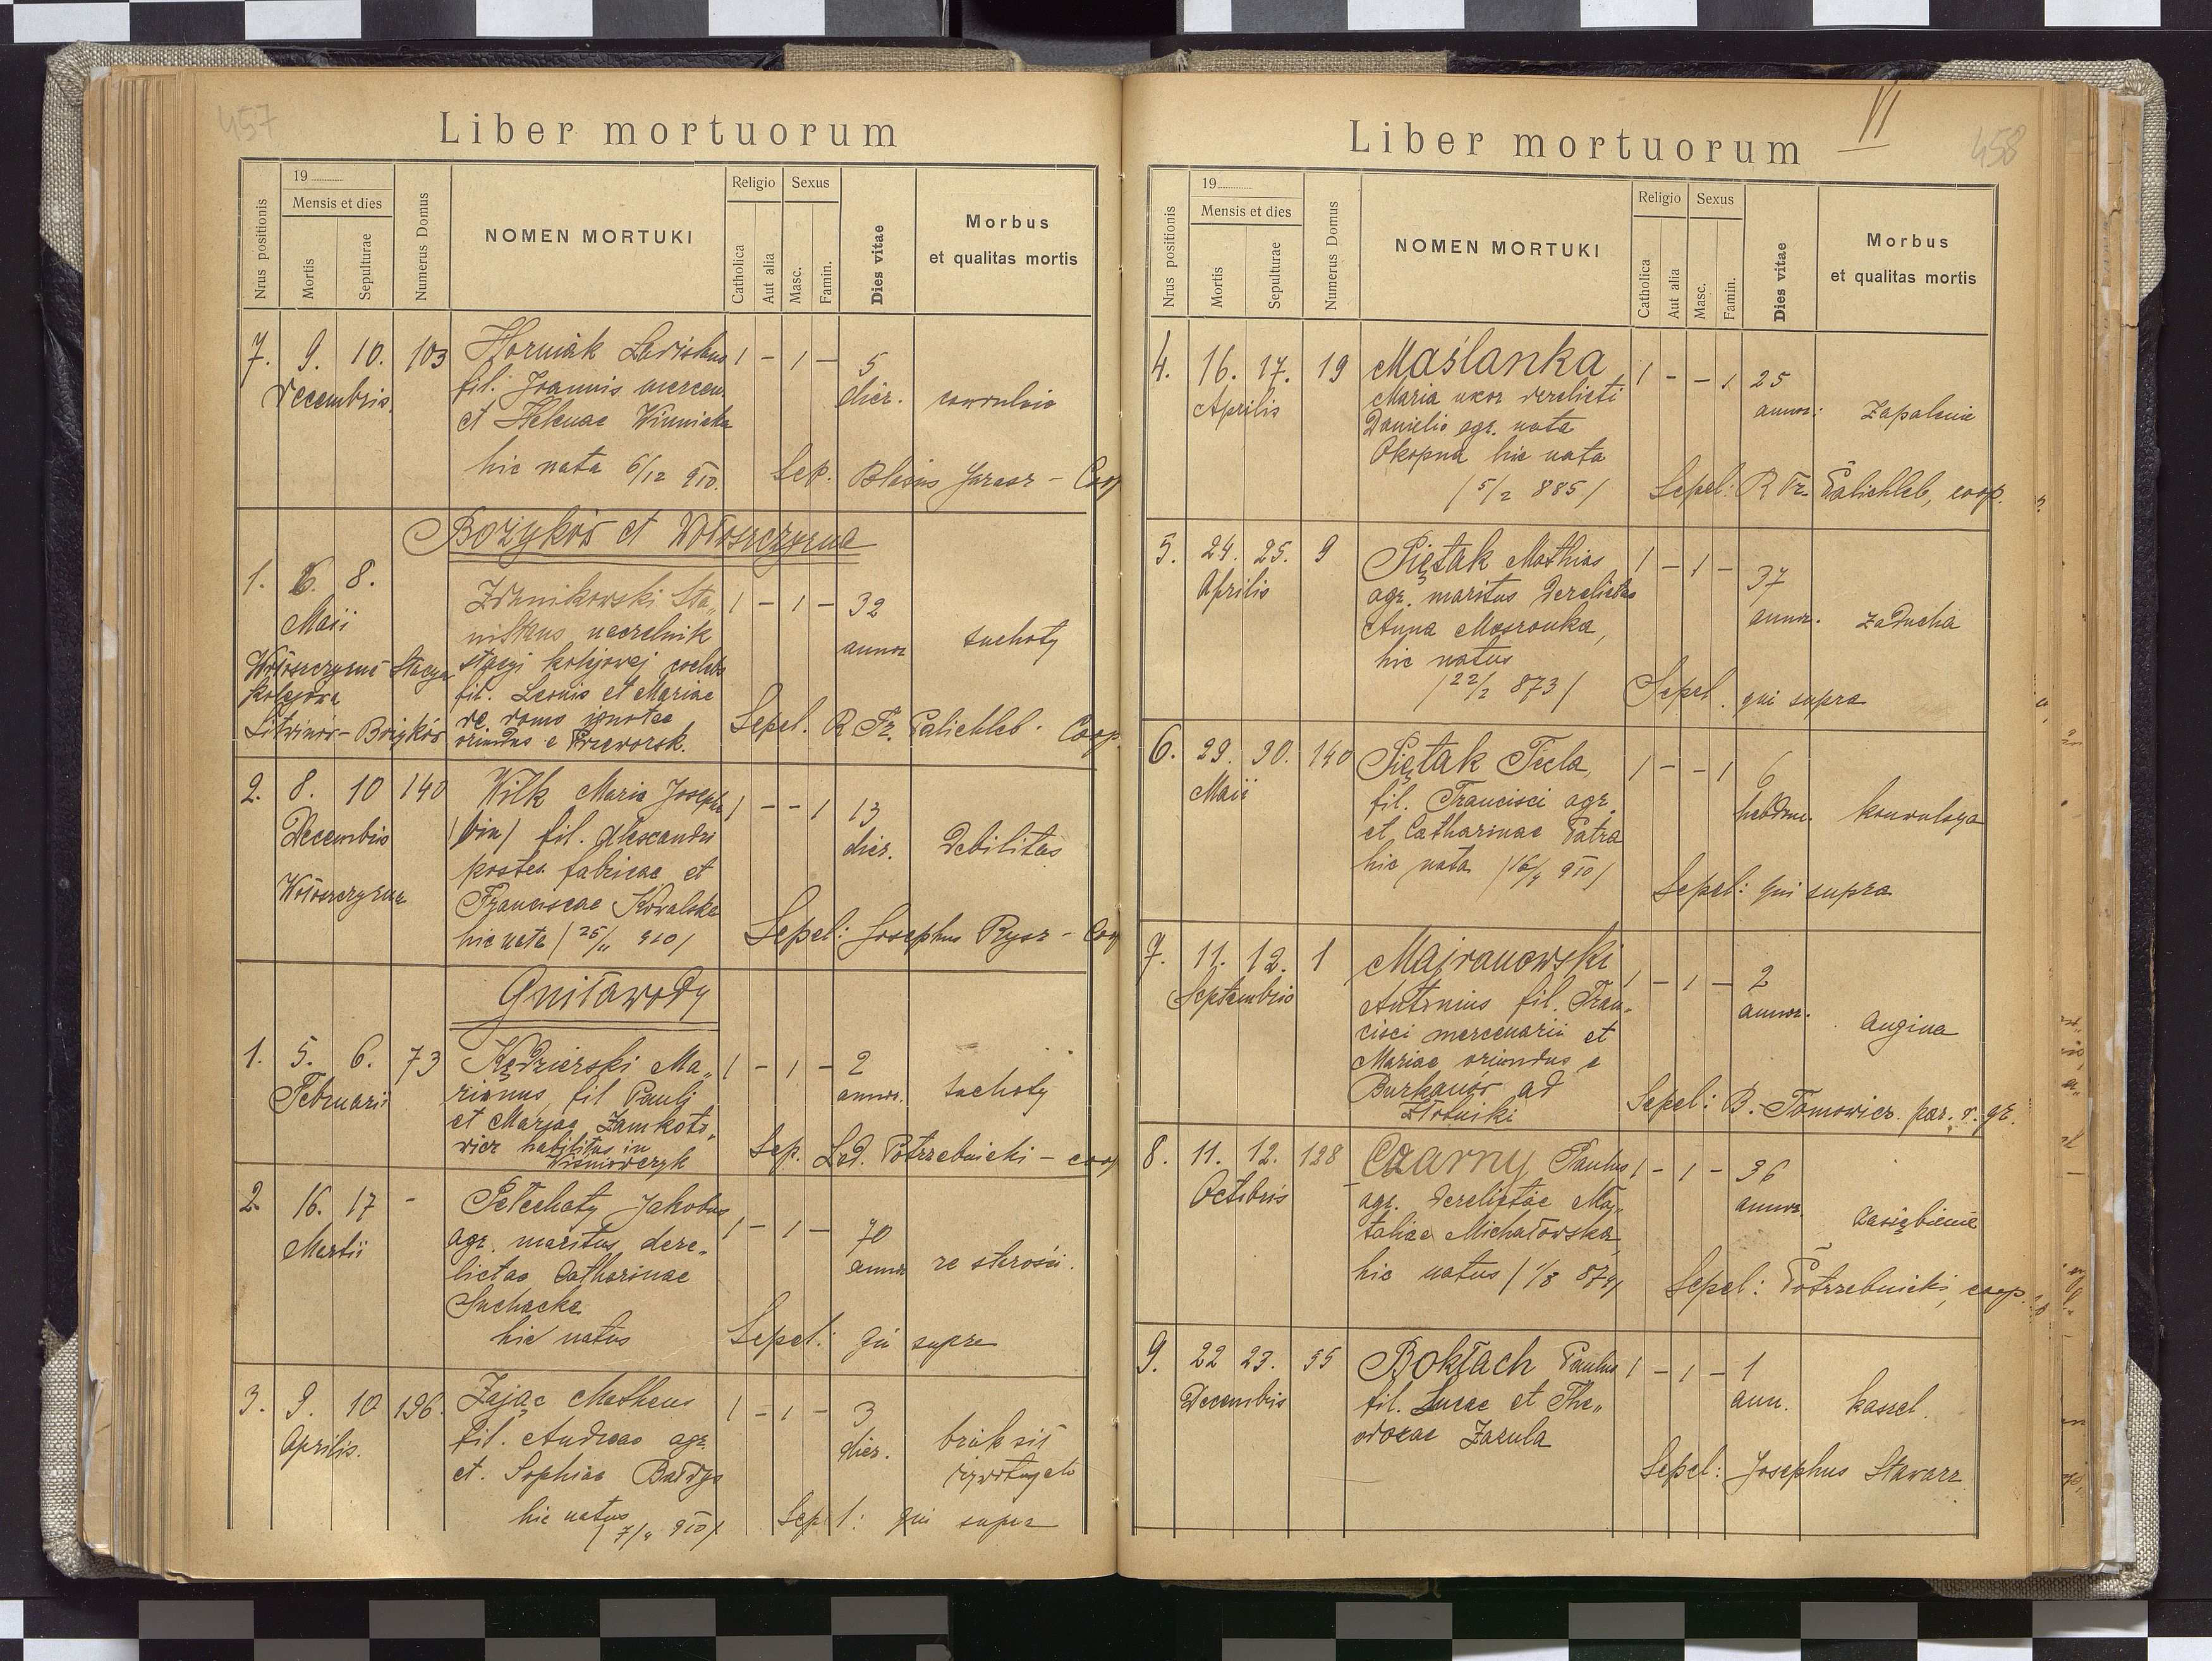 457
Liber mortuorum
Nrus positionis
19
Mensis et dies
Mortis
Sepulturae
Numerus Domus
NOMEN MORTUKI
Religio
Catholica
Aut alia
Sexus
Masc.
Famin.
Dies vitae
Morbus
et qualitas mortis
7. 9. 10. 103 Horniak Ladislaus 1 - 1 - 5
Decembris fil. Joannis mercen. dier.
et Helenae Winnicka
hic nata 6/12 910. Sep. Blasius Jurasz - Coop
Bożyków et Wołoszczyzna
1. 6. 8. Zdunikowski Sta„ 1 - 1 - 32
Maii nislaus naczelnik annor suchoty
Wołoszczyzna Stacya stacyi kolejowej coelebs
kolejowa fil. Leonis et Mariae
Litwinów - Bożyków de domo ignotae Sepel. R Fr. Palichleb. Coop.
oriundus e Przeworsk.
2. 8. 10 140 Wilk Maria Joseph 1 - - 1 13
Decembris (bin) fil. Alexandri dier. Debilitas
Wołoszczyzna postea fabricae et
Franciscae Kowalska
hic nata (25/11 910) Sepel: Josephus Rysz - Coop
Gniławody
1. 5. 6. 73 Kędzierski Ma„ 1 - 1 - 2
Februarii rianus, fil Pauli annor. suchoty
et Mariae Zamkoto„
wicz habilitus in Sep. Lad. Potrzebnicki - coop
Wiśniowczyk
2. 16. 17 - Petechaty Jakobus 1 - 1 - 70
Martii agr. maritus dere„ annor ze starości.
lictae Catharinae
Suchacka
hic natus Sepel: qui supra
3. 9. 10 196. Zając Matheus 1 - 1 - 3
Aprilis. fil. Andreae agr. dier. brak sił
et. Sophiae Bałdys żywotnych
hic natus Sepel: qui supra
(7/4 910)
VI
458
Liber mortuorum
Nrus positionis
19
Mensis et dies
Mortis
Sepulturae
Numerus Domus
NOMEN MORTUKI
Religio
Catholica
Aut alia
Sexus
Masc.
Famin.
Dies vitae
Morbus
et qualitas mortis
4. 16. 17. 19 Maślanka 1 - - 1 25
Aprilis Maria uxor derelicti annor. Zapalenie
Danielis agr. nata
Okopna hic nata
(5/2 885) Sepel: R Fr. Palichleb, coop.
5. 24. 25. 9 Piętak Mathias 1 - 1 - 37
Aprilis agr. maritus derelictae annor. zaducha
Anna Mazronka,
hic natus
(22/2 873) Sepel. qui supra
6. 29. 30. 140 Piętak Tecla, 1 - - 1 6
Maii fil. Francisci agr. hebdm. konwulsya
et Catharinae Patra
hic nata (16/4 910) Sepel: qui supra
7. 11. 12. 1 Majranowski 1 - 1 - 2
Septembris Antonius fil. Fran„ annor. angina
cisci mercenarii et
Mariae oriundus e
Burkanów ad Sepel: B. Tomowicz. par. r. gr.
Złotniki
8. 11. 12. 128 Czarny Paulus 1 - 1 - 36
Octobris agr. derelictae Na„ annor. zaziębienie
taliae Michałowska,
hic natus (1/8 874) Sepel: Potrzebnicki, coop.
9. 22 23. 55 Bokłach Paulus 1 - 1 - 1
Decembris fil. Lucae et The„ ann. kaszel.
odozae Zazula
Sepel: Josephus Stawarz